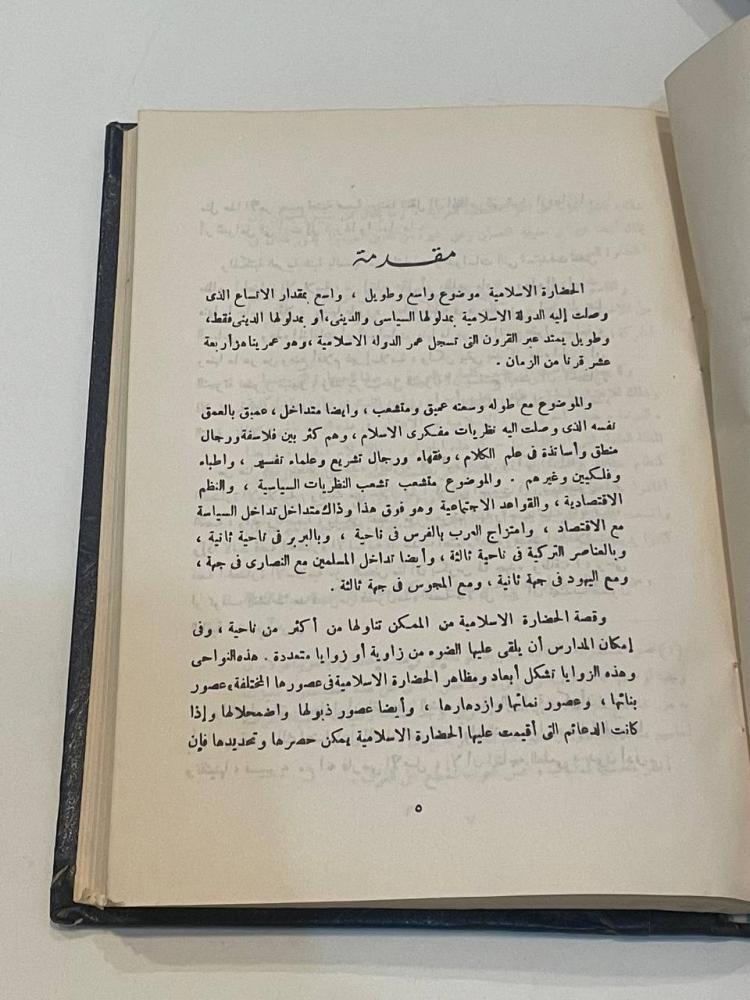 مقدمة
الحضارة الاسلامية موضوع واسع وطويل ، واسع بمقدار الاتساع الذى
وصلت إليه الدولة الاسلامية بمدلولها السياسى والدينى،أو بمدلولها الدينى فقط،
وطويل يمتد عبر القرون التى تسجل عمر الدولة الاسلامية ،وهو عمر يناهز أربعة
عشر قرنا من الزمان .
والموضوع مع طوله وسعته عميق ومتشعب ، وايضا متداخل ، عميق بالعمق
نفسه الذى وصلت اليه نظريات مفكرى الاسلام ، وهم كثر بين فلاسفة ورجال
منطق وأساتذة فى علم الكلام ، وفقهاء ورجال تشريع وعلماء تفسير ، واطباء
وفلكيين وغيرهم . والموضوع متشعب تشعب النظريات السياسية ، والنظم
الاقتصادية ، والقواعد الاجتماعية وهو فوق هذا وذاك متداخل تداخل السياسة
مع الاقتصاد ، وامتزاج العرب بالفرس فى ناحية ، وبالبربر فى ناحية ثانية ،
وبالعناصر التركية فى ناحية ثالثة ، وأيضا تداخل المسلمين مع النصارى فى جهة ،
ومع اليهود فى جهة ثانية ، ومع المجوس فى جهة ثالثة .
وقصة الحضارة الاسلامية من الممكن تناولها من أكثر من ناحية ، وفى
إمكان المدارس أن يلقى عليها الضوء من زاوية أو زوايا متعددة . هذه النواحى
وهذه الزوايا تشكل أبعاد ومظاهر الحضارة الاسلامية فى عصورها المختلفة ، عصور
بنائها ، وعصور نمائها وازدهارها ، وأيضا عصور ذبولها واضمحلالها وإذا
كانت الدعائم التى أقيمت عليها الحضارة الاسلامية يمكن حصرها وتحديدها فإن
٥